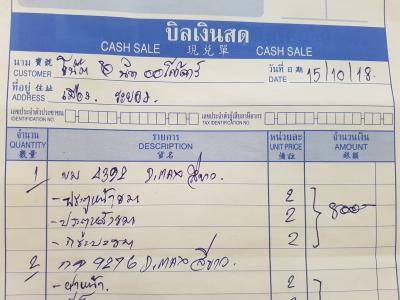 บิลเงินสด
CASH SALE 現兑單 CASH SALE
นาม 寶號
CUSTOMER
วันที่ 日期
DATE 15/10/18.
ที่อยู่ 住址
ADDRESS เมือง ระยอง
เลขประจำตัวประชาชน
IDENTIFICATION NO.
เลขประจำตัวผู้เสียภาษีอากร
TAX IDENTIFICATION NO.
จำนวน รายการ หน่วยละ จำนวนเงิน
QUANTITY DESCRIPTION UNIT PRICE AMOUNT
數量 貨名 備註 銀額
1 4392 D.MAX สีขาว
- ประตูหน้าขวา 2
- ประตูหลังขวา 2 800
- กระบะขวา 2
2 9276 D.MAX สีขาว.
- ฝาหน้า. 2